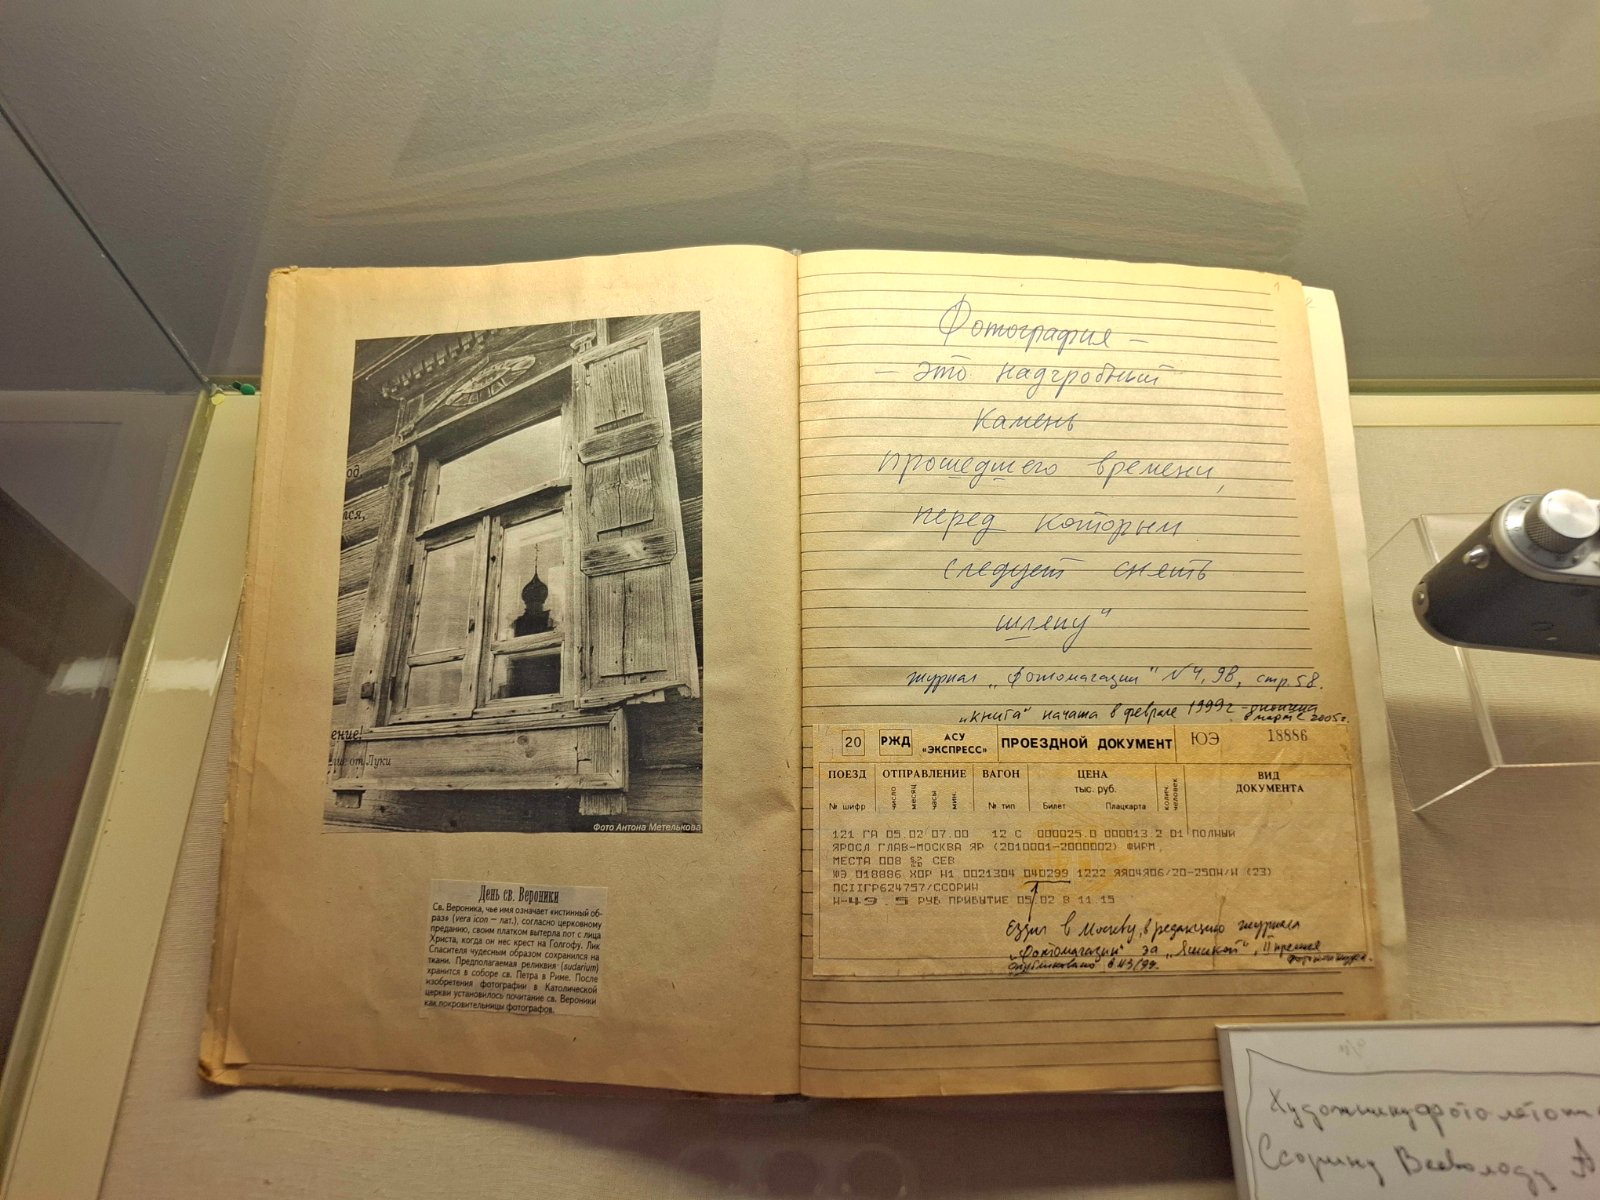 од,
тся,
ение!
ие от Луки
Фото Антона Метелькова
День св. Вероники
Св. Вероника, чье имя означает «истинный об-
раз» (vera icon — лат.), согласно церковному
преданию, своим платком вытерла пот с лица
Христа, когда он нес крест на Голгофу. Лик
Спасителя чудесным образом сохранился на
ткани. Предполагаемая реликвия (sudarium)
хранится в соборе св. Петра в Риме. После
изобретения фотографии в Католической
церкви установилось почитание св. Вероники
как покровительницы фотографов.
1
Фотография —
— это надгробный
камень
прошедшего времени,
перед которым
следует снять
шляпу"
журнал „Фотомагазин" №4, 98, стр. 58.
„книга" начата в феврале 1999г - окончена
в марте 2005г.
20 РЖД АСУ «ЭКСПРЕСС» ПРОЕЗДНОЙ ДОКУМЕНТ ЮЭ 18886
ПОЕЗД ОТПРАВЛЕНИЕ ВАГОН ЦЕНА ВИД
тыс. руб. ДОКУМЕНТА
№ шифр число месяц часы мин. № тип Билет Плацкарта колич. человек
121 ГА 05.02 07.00 12 С 000025.0 000013.2 01 ПОЛНЫЙ
ЯРОСЛ ГЛАВ-МОСКВА ЯР (2010001-2000002) ФИРМ.
МЕСТА 008 СЕВ
ЮЭ 018886 ХОР Н1 0021304 040299 1222 ЯЯ04Я06/20-250Н/Н (23)
ПСIIГР624757/ССОРИН
Н-49.5 РУБ ПРИБЫТИЕ 05.02 В 11.15
Ездил в Москву, в редакцию журнала
„Фотомагазин" за „Яшикой", II премия
опубликовано в №3/99.
Художнику фотолетописи
Ссорину Всеволоду А